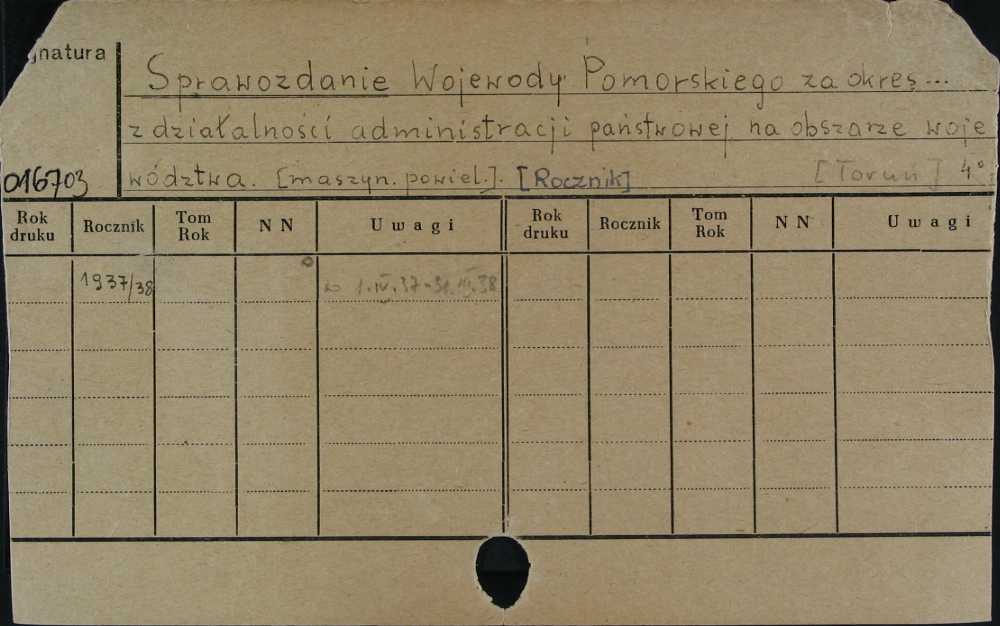 gnatura
Sprawozdanie Wojewody Pomorskiego za okres...
z działalności administracji państwowej na obszarze woje
016703 wództwa. [maszyn. powiel.]. [Rocznik] [Toruń] 4°
Rok druku Rocznik Tom Rok NN Uwagi Rok druku Rocznik Tom Rok NN Uwagi
1937/38 1.IV.37-31.III.38